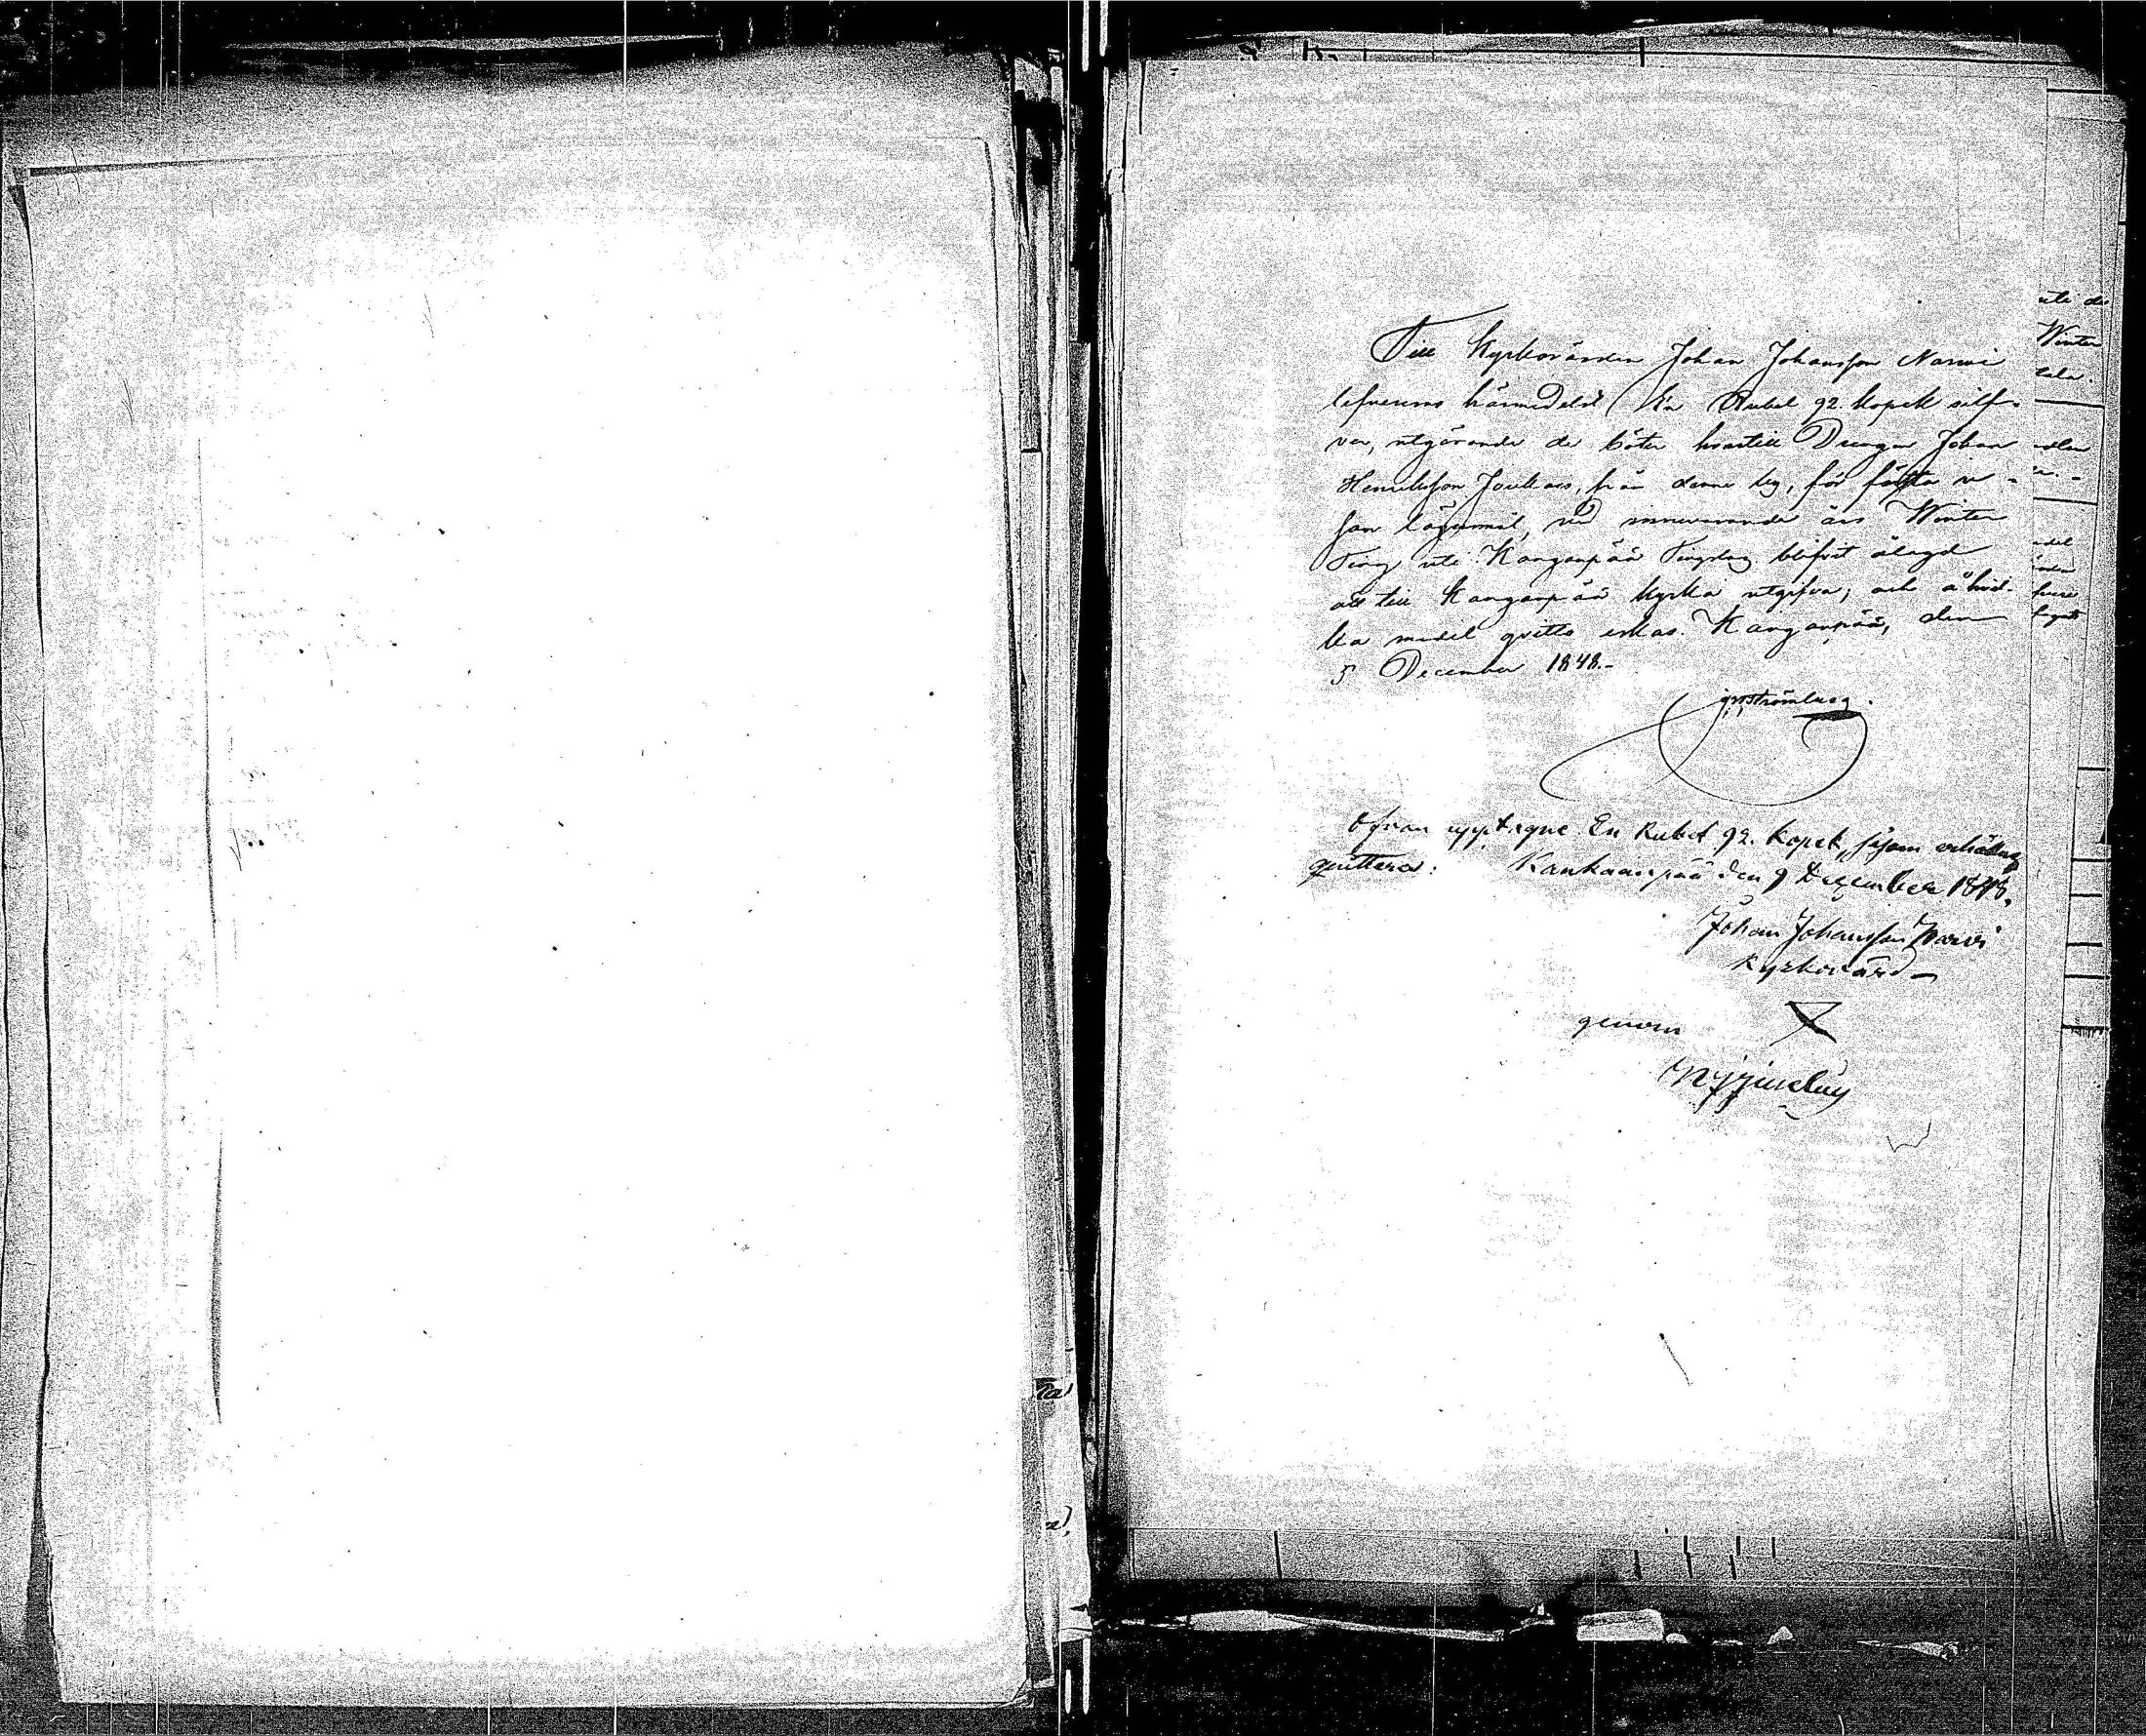 Till Kyrkovärden Johan Johansson Narvi
lefvereras härmedelst En Rubel 92. Kopek silf-
ver, utgörande de böter hvartill Drengen Johan
Henriksson Juukais, från denne by, för första re-
san lägersmål, vid innevarande års Winter
Ting uti Kanganpää Tingslag blifvit ålagd
att till Kanganpää kyrka utgifva; och å hvil-
ka medel qvitto erkas. Kanganpää, den
5 December 1848.-
Strömberg.
Ofvan upptagne En Rubel 92. Kopek, såsom erhållne
quitteras. Kankaanpää den 9 December 1848.
Johan Johansson Narvi
Kyrkovärd
genom
uti de
Winter